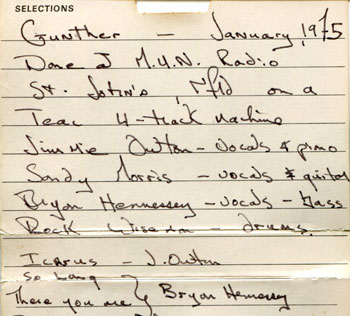 SELECTIONS
Gunther - January, 1975
Done @ M.U.N. Radio
St. John's, Nfld on a
Teac 4-track machine
Jimmie Outon - vocals & piano
Sandy Morris - vocals & guitar
Bryan Hennessy - vocals - bass
Rock Wiseman - drums.
Icarus - J. Outon
So Long
There you are } Bryan Hennessy